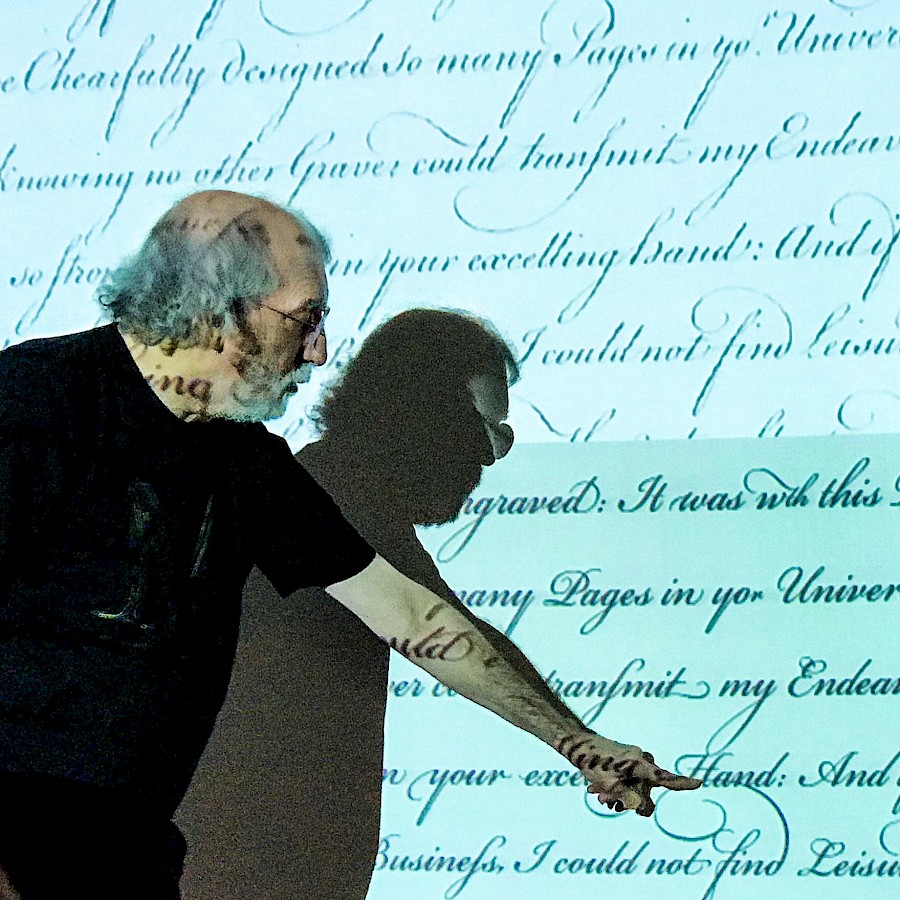 e Chearfully designed so many Pages in yor. Univer
knowing no other Graver could tranſmit my Endeav
so ſtro in your excelling Hand: And if
I could not find Leisu
ngraved: It was wth this
many Pages in yor Univer
ver co tranſmit my Endeav
n your exce lling Hand: And
Buſineſs, I could not find Leisu